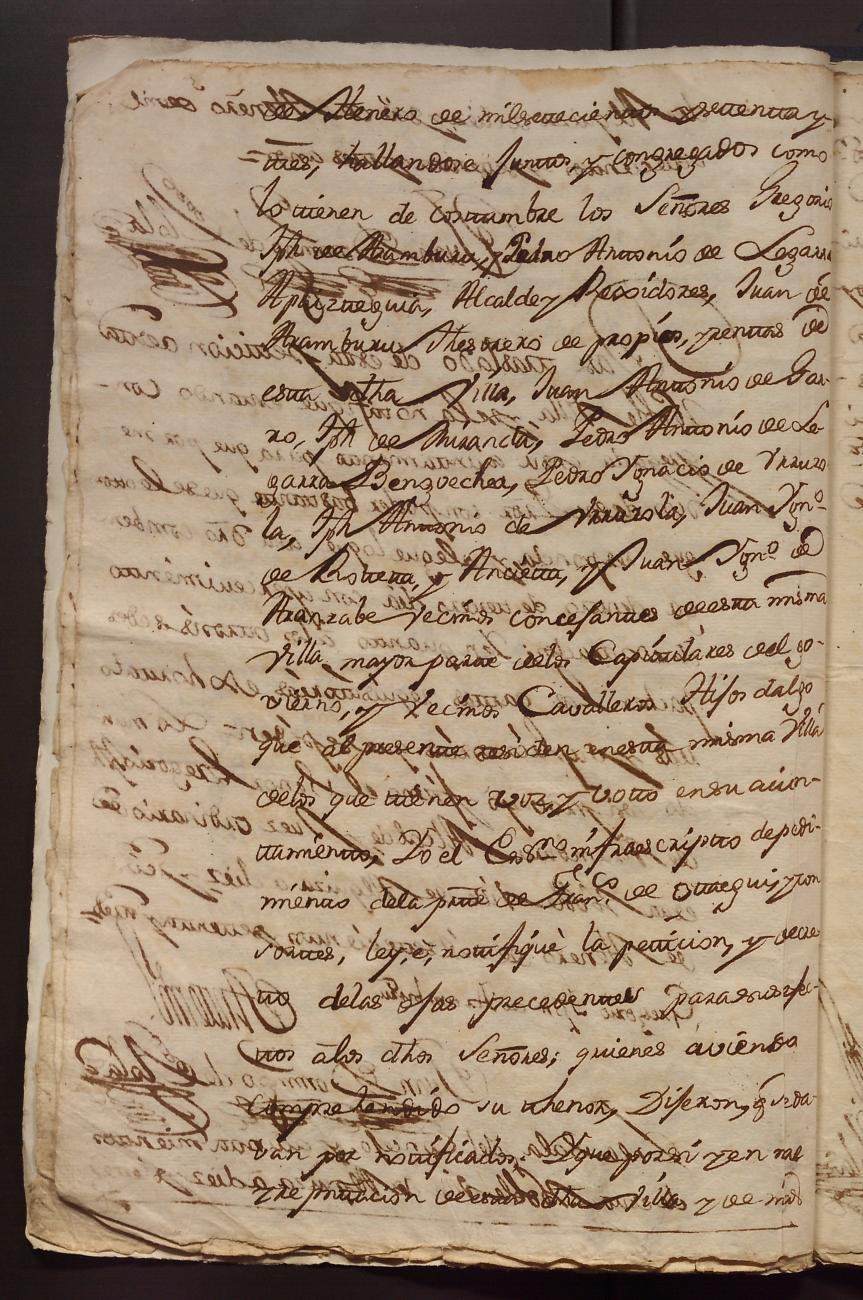 de Henero de mil setecientos y settenta y
ttres, hallandose Junttos y congregados como
lo ttienen de costtumbre los Señores Gregorio
Jph de Aramburu, y Pedro Antonio de Legarra
Apaizteguia, Alcalde y Rexidores, Juan de
Aramburu Thesorero de propios, y renttas de
estta dha Villa, Juan Anttonio de Ga-
ro, Jph de Miranda, Pedro Anttonio de Le-
garra Bengoechea, Pedro Ygnacio de Vrruzo
la, Jph Anttonio de Vrruzola, Juan Ygnº
de Rotteta, y Ancietta, y Juan Ygnº de
Aranzabe Vecinos concejantes de estta misma
Villa, mayor partte de los Capittulares del go-
vierno, y Vecinos Cavalleros Hijos dalgo
que al presentte residen en estta misma Villa
de los que ttienen voz, y votto en su aiun-
ttamientto, Yo el Essno infraescripto de pedi-
mientto de la ptte de Franco de Ottaegui, y con
sorttes, ley, e, nottifiquè la petticion, y decre
tto de las ojas precedenttes para sus efec-
ttos a los dhos Señores; quienes aviendo
comprehendido su thenor, Dijeron, q se da-
van por nottificados. Y que por si y en nre
y reputtacion de estta dha Villa y de mas